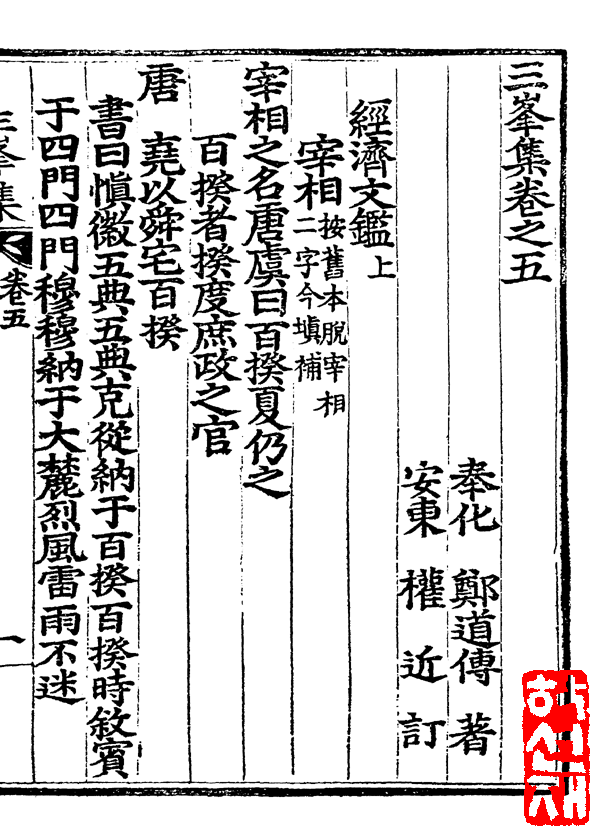 三峯集卷之五
奉化 鄭道傳 著
安東 權近 訂
經濟文鑑上
宰相按舊本脫宰相二字今塡補
宰相之名唐虞曰百揆夏仍之
百揆者揆度庶政之官
唐 堯以舜宅百揆
書曰愼徽五典五典克從納于百揆百揆時敘賓
于四門四門穆穆納于大麓烈風雷雨不迷
三峯集 卷五 一